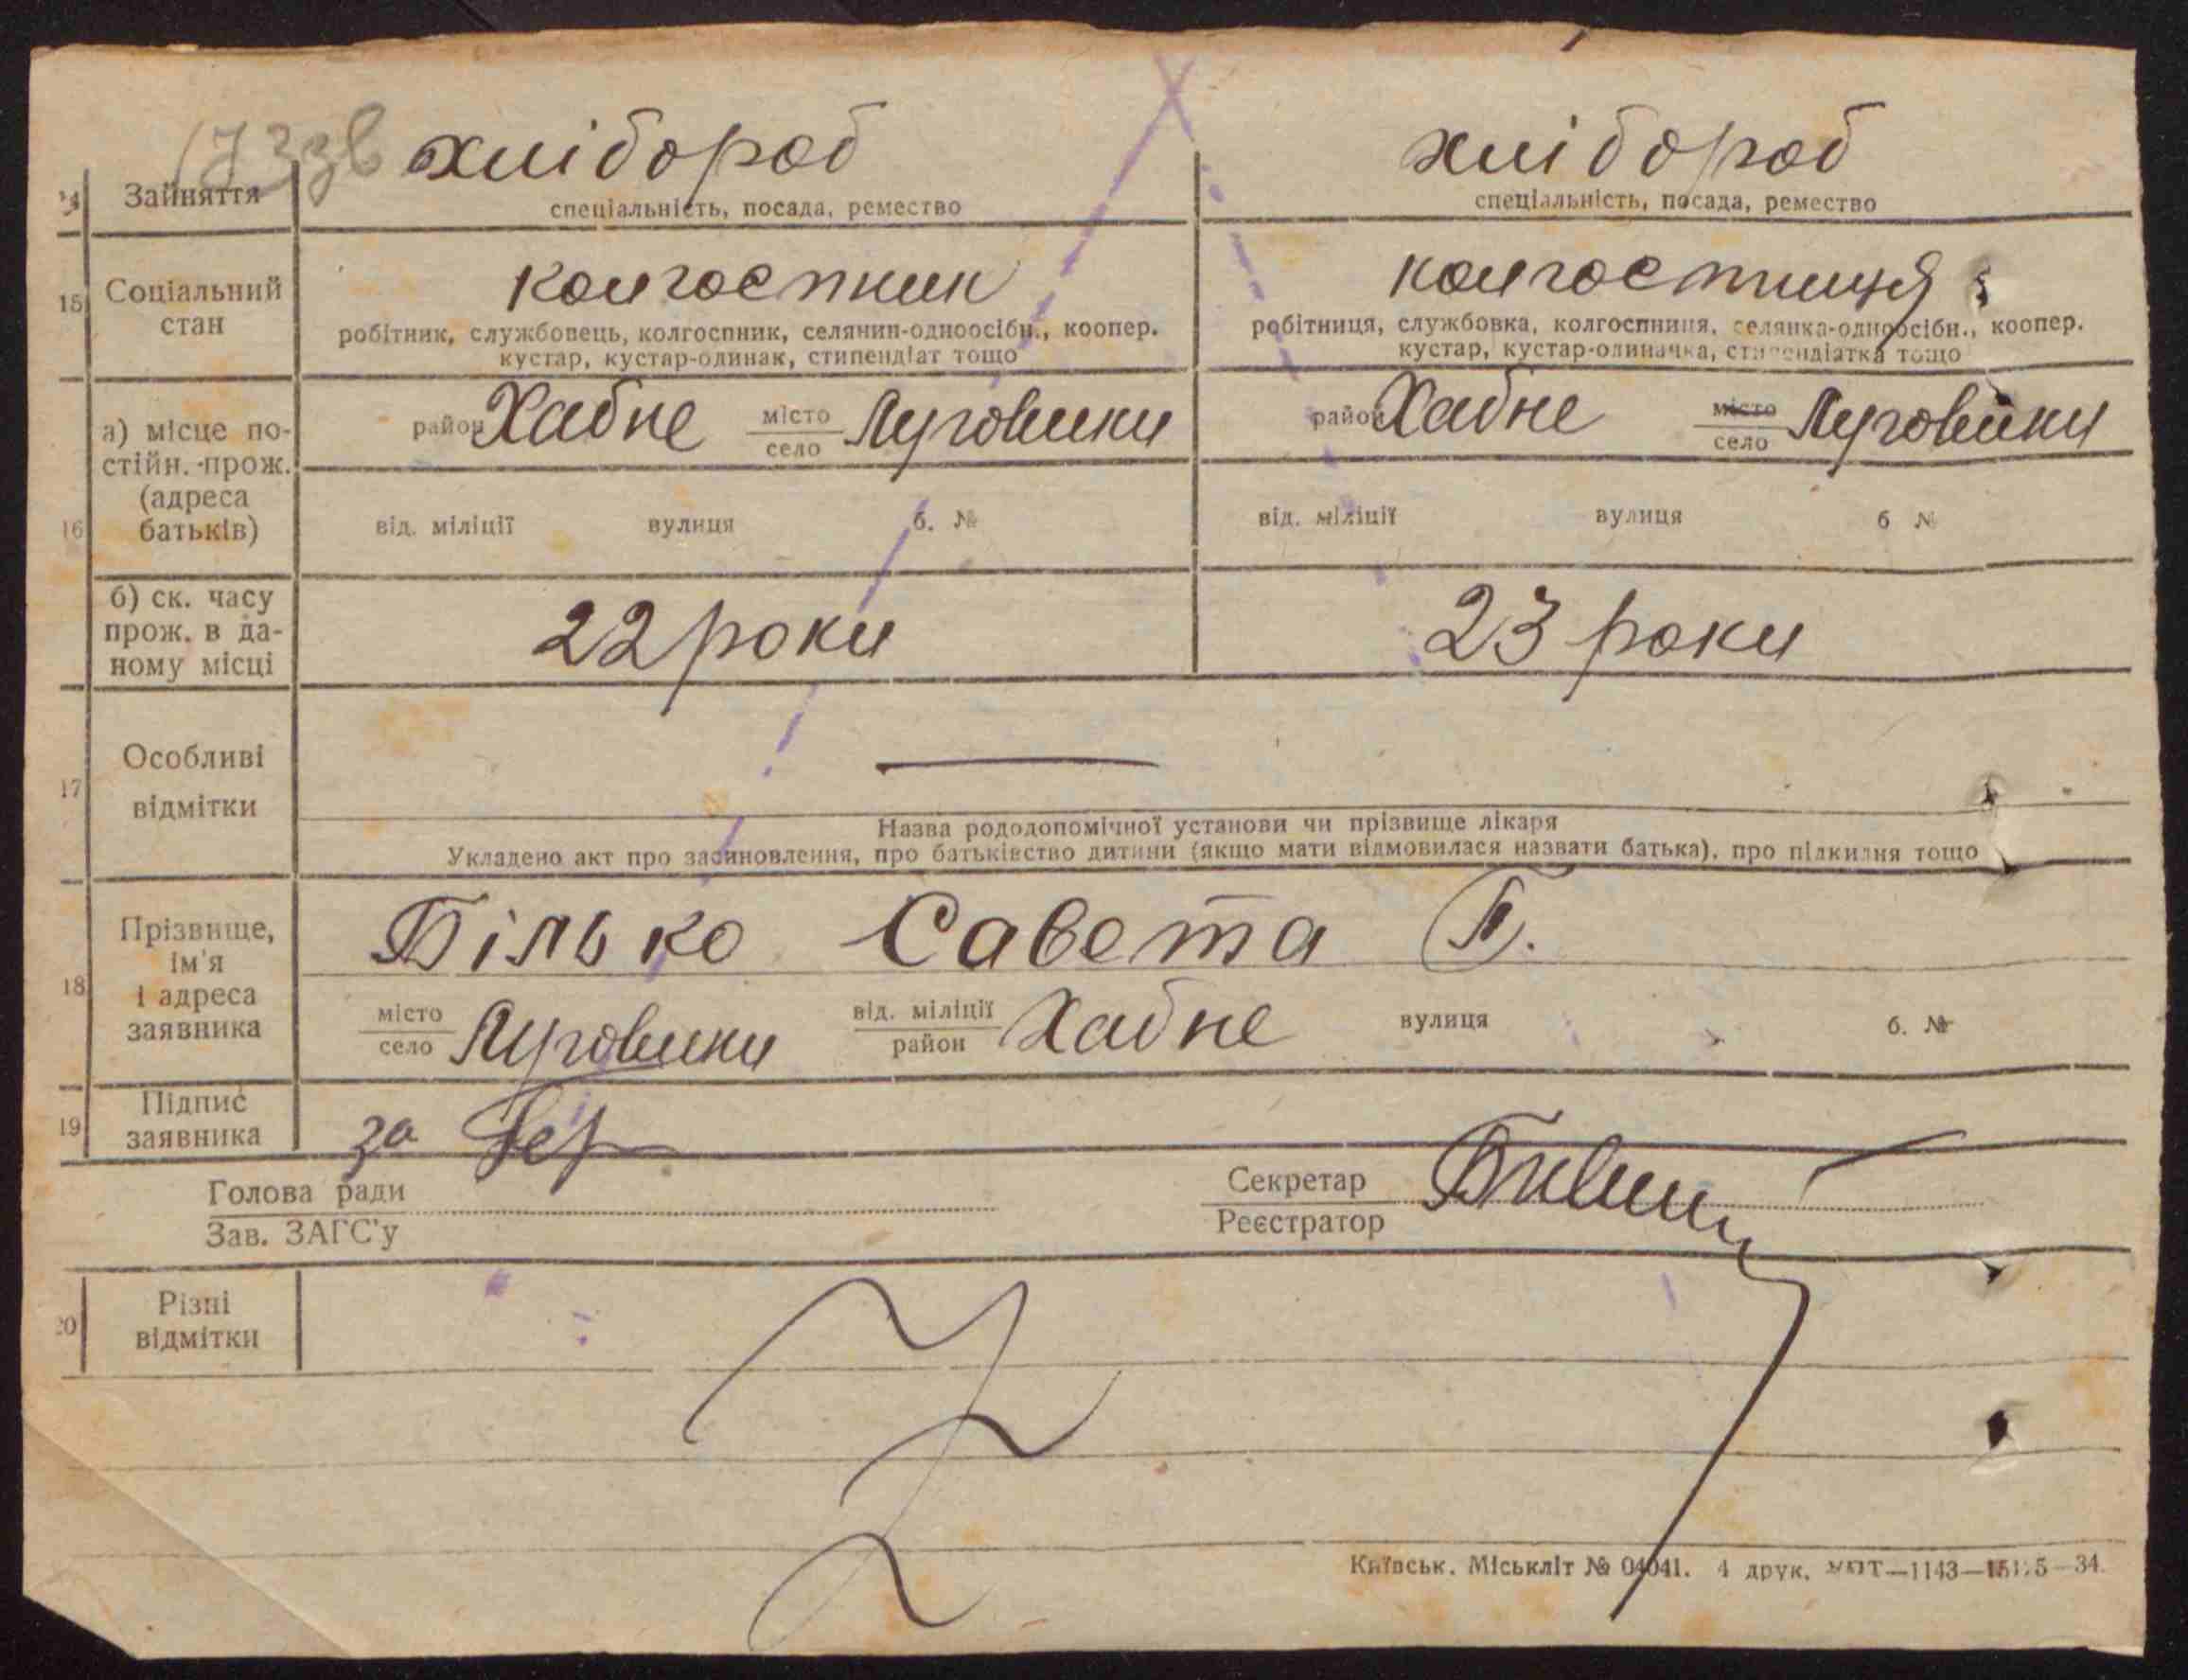 173зв
хлібороб хлібороб
14 Зайняття
спеціальність, посада, ремество спеціальність, посада, ремество
колгоспник колгоспниця
15 Соціальний стан
робітник, службовець, колгоспник, селянин-одноосібн., коопер. робітниця, службовка, колгоспниця, селянка-одноосібн., коопер.
кустар, кустар-одинак, стипендіат тощо кустар, кустар-одиначка, стипендіатка тощо
район Хабне місто село Луговики район Хабне місто село Луговики
16 а) місце по-
стійн. прож.
(адреса
батьків)
від. міліції вулиця б. № від. міліції вулиця б №
б) ск. часу
прож. в да-
ному місці
22 роки 23 роки
17 Особливі
відмітки
Назва рододопомічної установи чи прізвище лікаря
Укладено акт про засиновлення, про батьківство дитини (якщо мати відмовилася назвати батька), про підкидня тощо
18 Прізвище,
ім'я
і адреса
заявника
Білько Савета П.
місто село Луговики від. міліції район Хабне вулиця б. №
19 Підпис
заявника
за
Голова ради
Зав. ЗАГС'у
Секретар
Реєстратор
20 Різні
відмітки
Київськ. Міськліт № 04041. 4 друк.